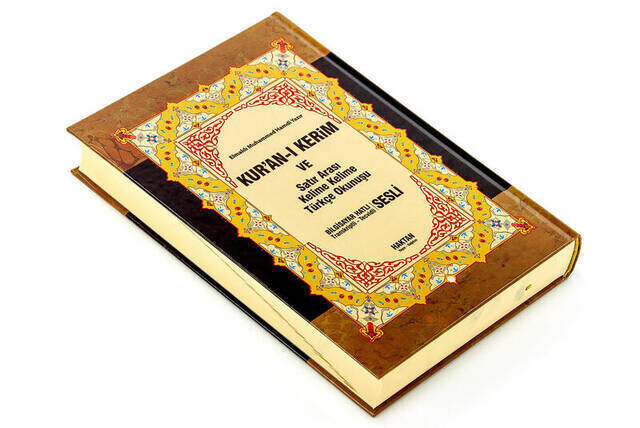 Elmalılı Muhammed Hamdi Yazır
KUR'AN-I KERİM
VE
Satır Arası
Kelime Kelime
Türkçe Okunuşu
BİLGİSAYAR HATLI
Transkriptli - Tecvidli
SESLİ
HAKTAN